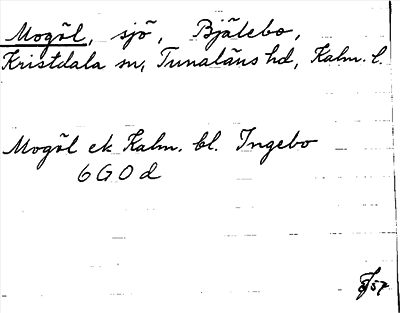 Mogöl, sjö, Bjälebo,
Kristdala sn, Tunaläns hd, Kalm. l.
Mogöl ek Kalm. bl. Ingebo
6 G 0 d
57